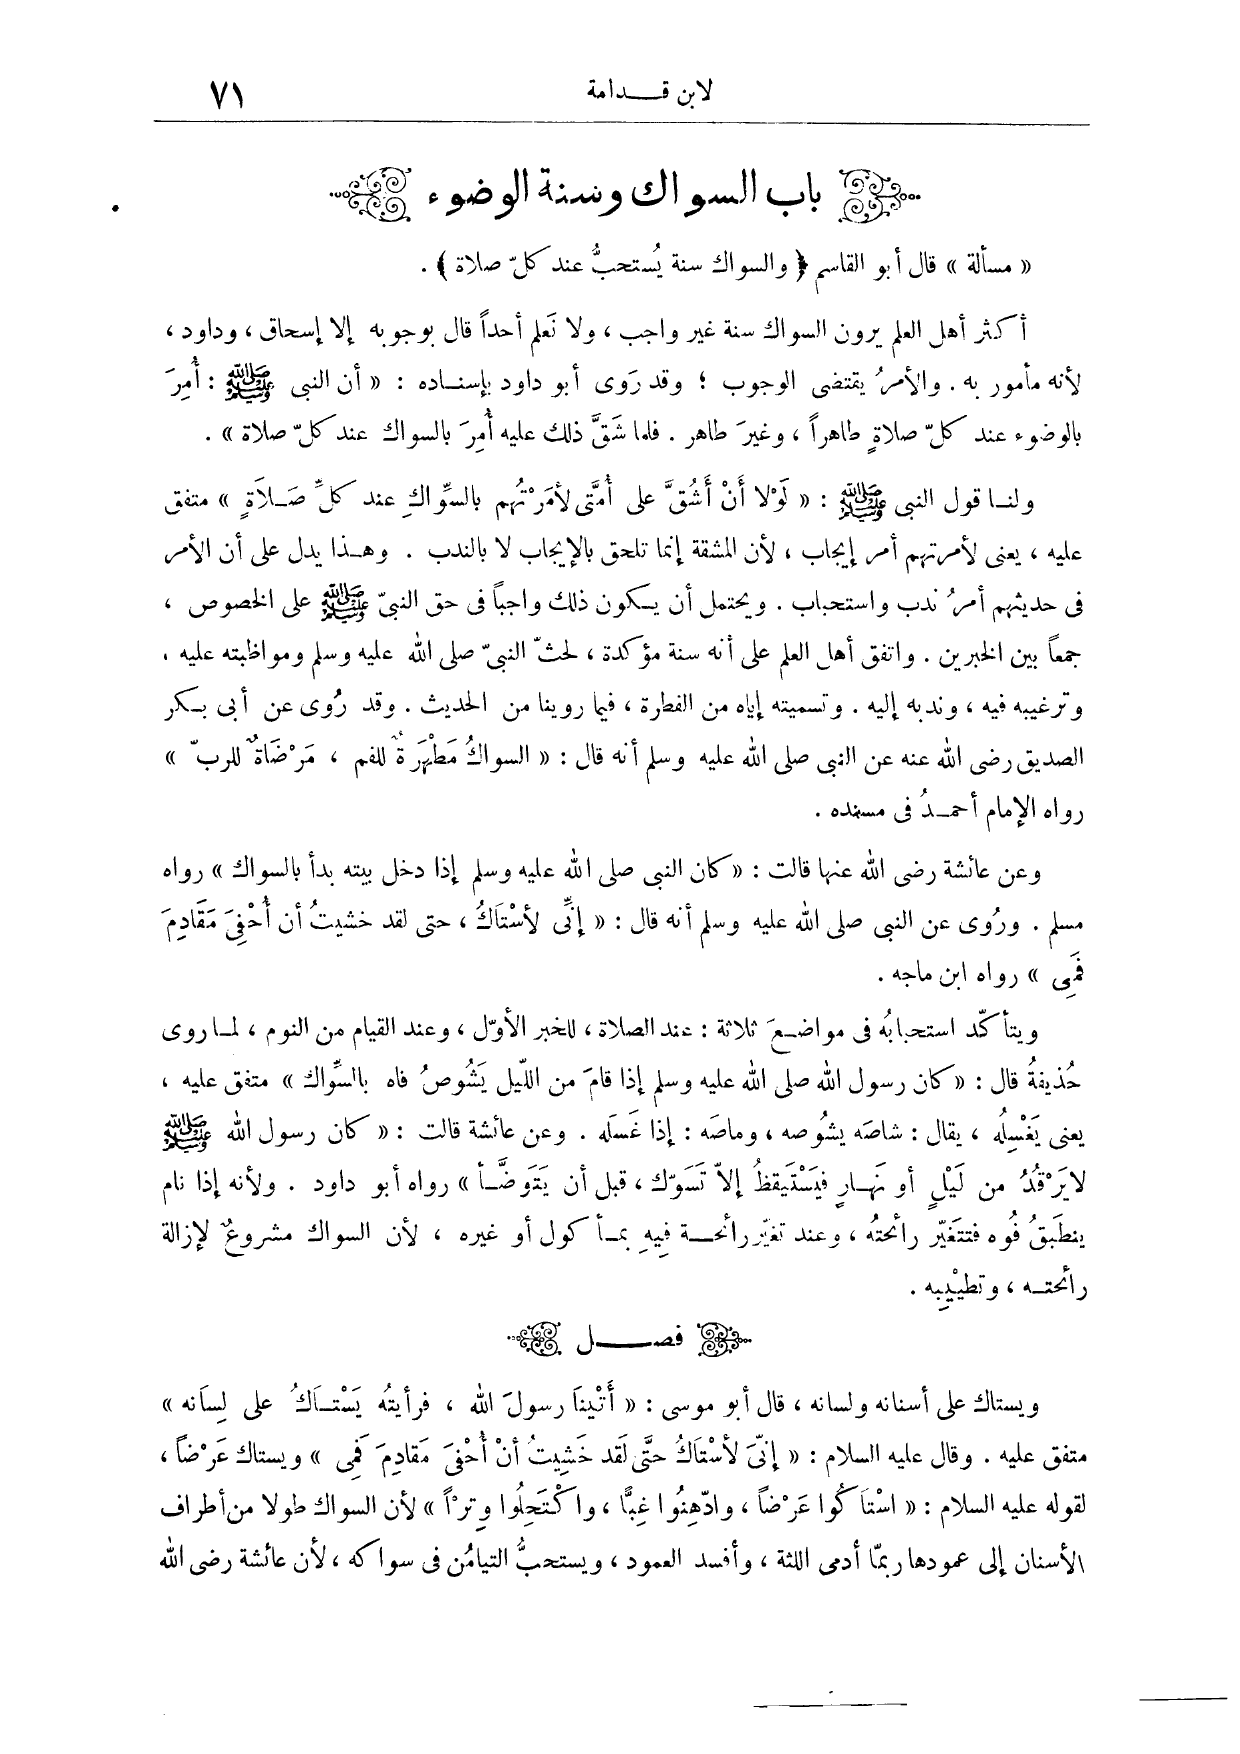 لابن قدامة
٧١
باب السواك وسنة الوضوء
« مسألة » قال أبو القاسم ﴿ والسواك سنة يُستحبُّ عند كلّ صلاة ﴾ .
أكثر أهل العلم يرون السواك سنة غير واجب ، ولا نَعلم أحداً قال بوجوبه إلا إسحاق ، وداود ،
لأنه مأمور به . والأمرُ يقتضى الوجوب ؛ وقد رَوى أبو داود بإسناده : « أن النبى ﷺ : أُمِرَ
بالوضوء عند كلّ صلاةٍ طاهراً ، وغيرَ طاهر . فلما شَقَّ ذلك عليه أُمِرَ بالسواك عند كلّ صلاة » .
ولنا قول النبى ﷺ : « لَوْلا أَنْ أَشُقَّ على أُمَّتى لأمَرْتُهم بالسِّواكِ عند كلِّ صَلاَةٍ » متفق
عليه ، يعنى لأمرتهم أمر إيجاب ، لأن المشقة إنما تلحق بالإيجاب لا بالندب . وهذا يدل على أن الأمر
فى حديثهم أمرُ ندب واستحباب . ويحتمل أن يكون ذلك واجباً فى حق النبىّ ﷺ على الخصوص ،
جمعاً بين الخبرين . واتفق أهل العلم على أنه سنة مؤكدة ، لحثّ النبىّ صلى الله عليه وسلم ومواظبته عليه ،
وترغيبه فيه ، وندبه إليه . وتسميته إياه من الفطرة ، فيما روينا من الحديث . وقد رُوى عن أبى بكر
الصديق رضى الله عنه عن النبى صلى الله عليه وسلم أنه قال : « السواكُ مَطْهَرَةٌ للفم ، مَرْضَاةٌ للرب » 
رواه الإمام أحمدُ فى مسنده .
وعن عائشة رضى الله عنها قالت : « كان النبى صلى الله عليه وسلم إذا دخل بيته بدأ بالسواك » رواه
مسلم . ورُوى عن النبى صلى الله عليه وسلم أنه قال : « إنِّى لأسْتَاكُ ، حتى لقد خشيتُ أن أُحْفِىَ مَقَادِمَ
فَمِى » رواه ابن ماجه .
ويتأكّد استحبابُه فى مواضعَ ثلاثة : عند الصلاة ، للخبر الأوّل ، وعند القيام من النوم ، لما روى
حُذيفةُ قال : « كان رسول الله صلى الله عليه وسلم إذا قامَ من اللّيل يَشُوصُ فاه بالسِّواك » متفق عليه ،
يعنى يَغْسِلُه ، يقال : شاصَه يشُوصه ، وماصَه : إذا غَسَله . وعن عائشة قالت : « كان رسول الله ﷺ
لايَرْقُدُ من لَيْلٍ أو نَهارٍ فيَسْتَيقظُ إلاّ تَسَوّك ، قبل أن يَتَوضَّأ » رواه أبو داود . ولأنه إذا نام
ينطَبِقُ فُوه فتتَغَيّر رائحتُه ، وعند تغيّر رائحة فيهِ بمأكول أو غيره ، لأن السواك مشروعٌ لإزالة
رائحته ، وتطيْيبه .
فصل
ويستاك على أسنانه ولسانه ، قال أبو موسى : « أَتْينَا رسولَ الله ، فرأيتُه يَسْتاكُ على لِسَانه »
متفق عليه . وقال عليه السلام : « إنّى لأسْتَاكُ حتَّى لَقد خَشِيتُ أنْ أُحْفِىَ مَقادِمَ فَمِى » ويستاك عَرْضاً ،
لقوله عليه السلام : « اسْتَاكُوا عَرْضاً ، وادّهِنُوا غِبًّا ، واكْتَحِلُوا وِتراً » لأن السواك طولا من أطراف
الأسنان إلى عمودها ربمّا أدمى اللثة ، وأفسد العمود ، ويستحبُّ التيامُن فى سواكه ، لأن عائشة رضى الله